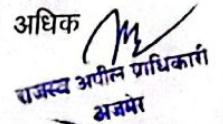 अधिक
राजस्व अपील प्राधिकारी
अजमेर